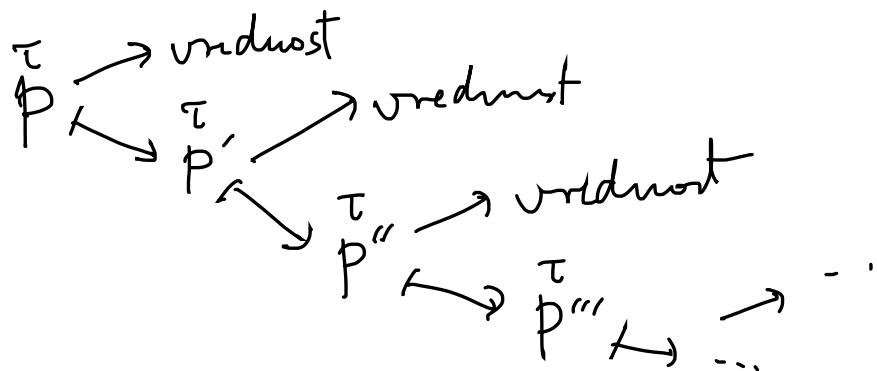 τ
p → vrednost
τ
p ↦ p' → vrednost
τ
p' ↦ p'' → vrednost
τ
p'' ↦ p''' → ...
↦ ...